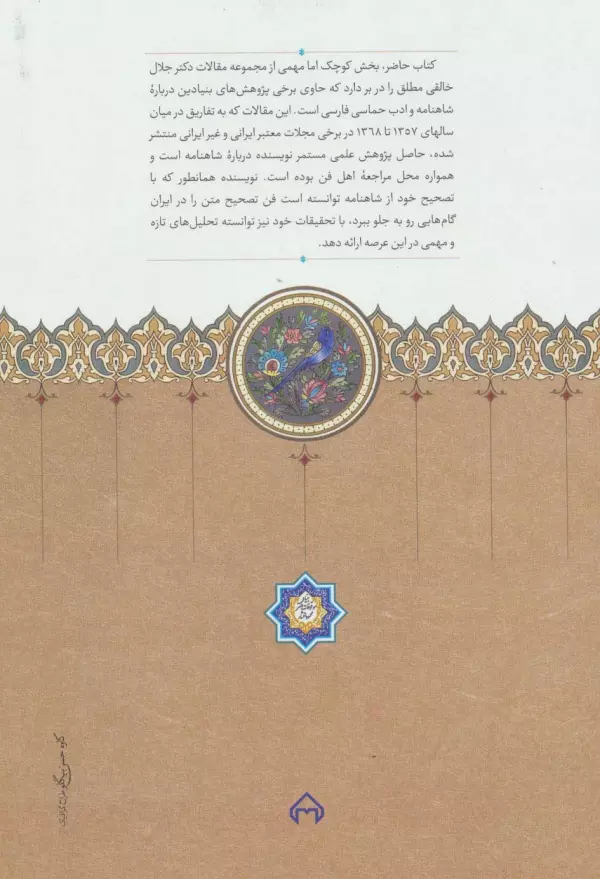 کتاب حاضر، بخش کوچک اما مهمی از مجموعه مقالات دکتر جلال
خالقی مطلق را در بر دارد که حاوی برخی پژوهش‌های بنیادین دربارهٔ
شاهنامه و ادب حماسی فارسی است. این مقالات که به تفاریق در میان
سالهای ۱۳۵۷ تا ۱۳۶۸ در برخی مجلات معتبر ایرانی و غیر ایرانی منتشر
شده، حاصل پژوهش علمی مستمر نویسنده دربارهٔ شاهنامه است و
همواره محل مراجعهٔ اهل فن بوده است. نویسنده همانطور که با
تصحیح خود از شاهنامه توانسته است فن تصحیح متن را در ایران
گام‌هایی رو به جلو ببرد، با تحقیقات خود نیز توانسته تحلیل‌های تازه
و مهمی در این عرصه ارائه دهد.
کاوه حسن بیگلو